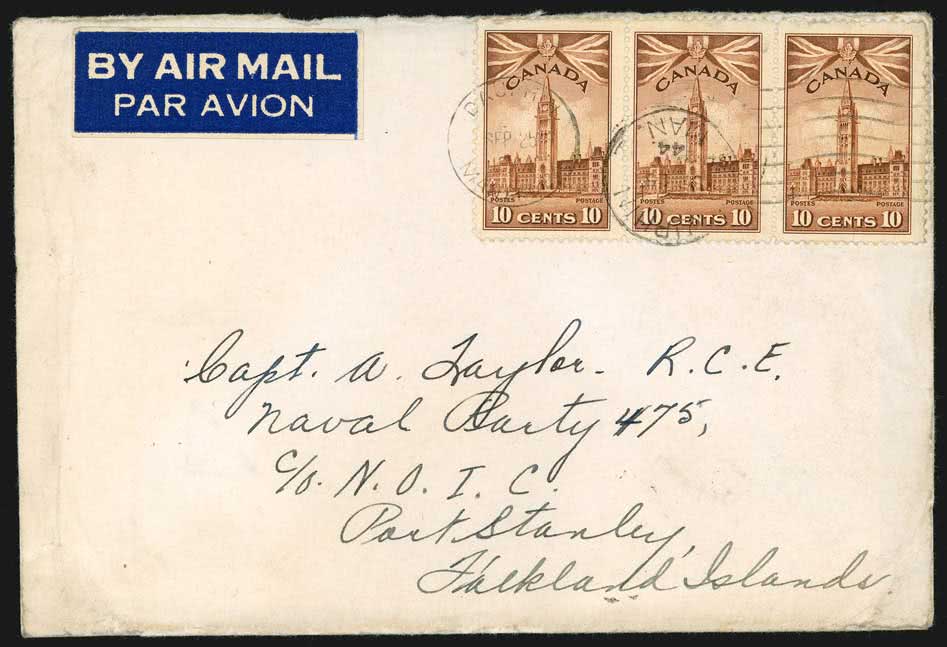 BY AIR MAIL
PAR AVION
CANADA
POSTES POSTAGE
10 CENTS 10
CANADA
POSTES POSTAGE
10 CENTS 10
CANADA
POSTES POSTAGE
10 CENTS 10
SEP
MAN.
44
Capt. A. Taylor. R.C.E.
Naval Party 475,
c/o. N.O.I.C.
Port Stanley,
Falkland Islands